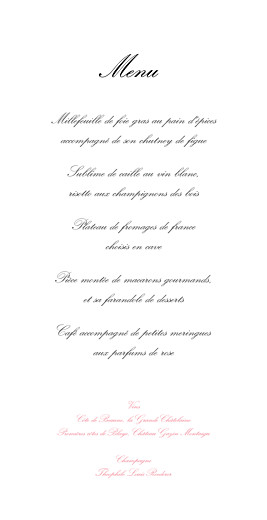 Menu
Millefeuille de foie gras au pain d'épices
accompagné de son chutney de figue
Sublime de caille au vin blanc,
risotto aux champignons des bois
Plateau de fromages de france
choisis en cave
Pièce montée de macarons gourmands,
et sa farandole de desserts
Café accompagné de petites meringues
aux parfums de rose
Vins
Côte de Beaune, la Grande Châtelaine
Premières côtes de Blaye, Château Grazon Montaigu
Champagne
Théophile Louis Roederer